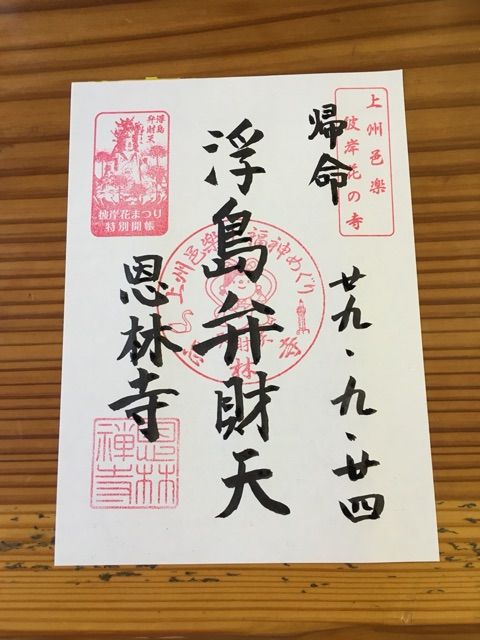 上州邑楽
彼岸花の寺
帰命
廿九、九、廿四
浮島弁財天
恩林寺
浮島
弁財天
彼岸花まつり
特別開帳
上州邑楽 福神めぐり
恩林禅寺